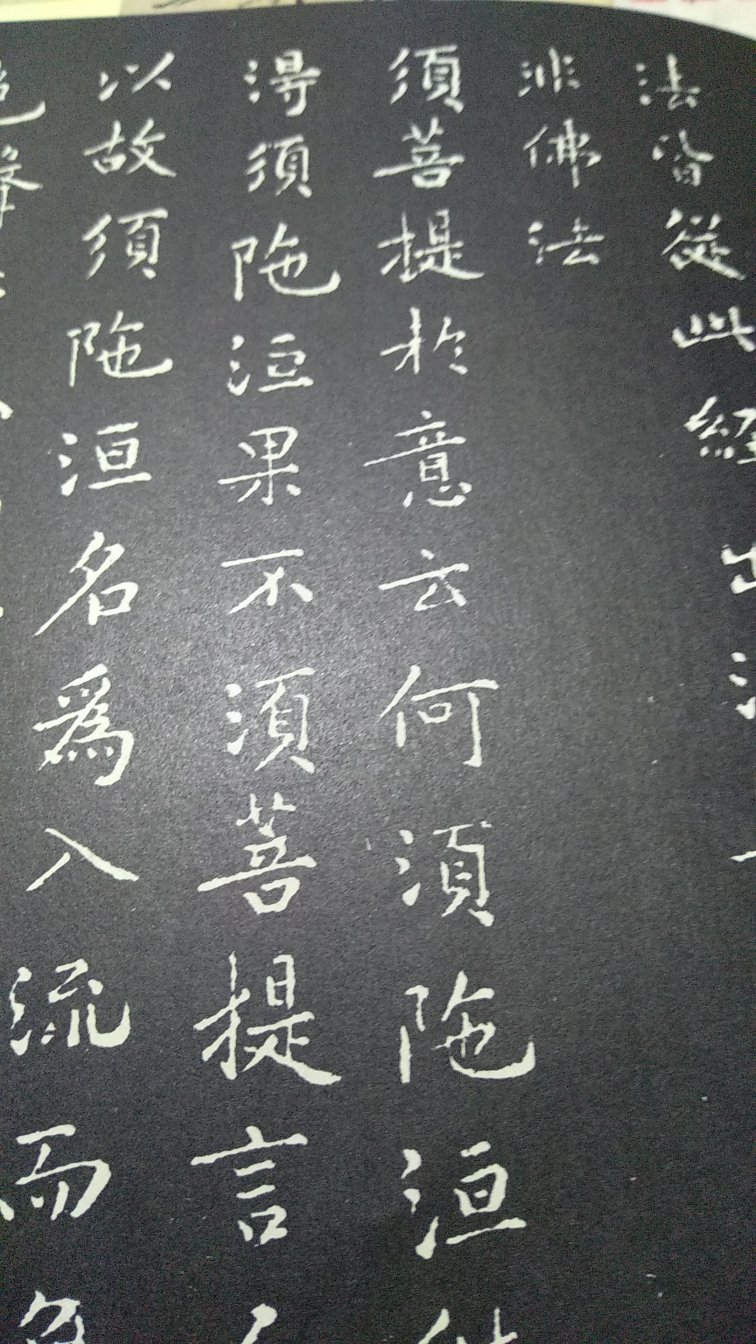 法皆從此經出
非佛法
須菩提於意云何須陁洹
淂須陁洹果不須菩提言
以故須陁洹名為入流而